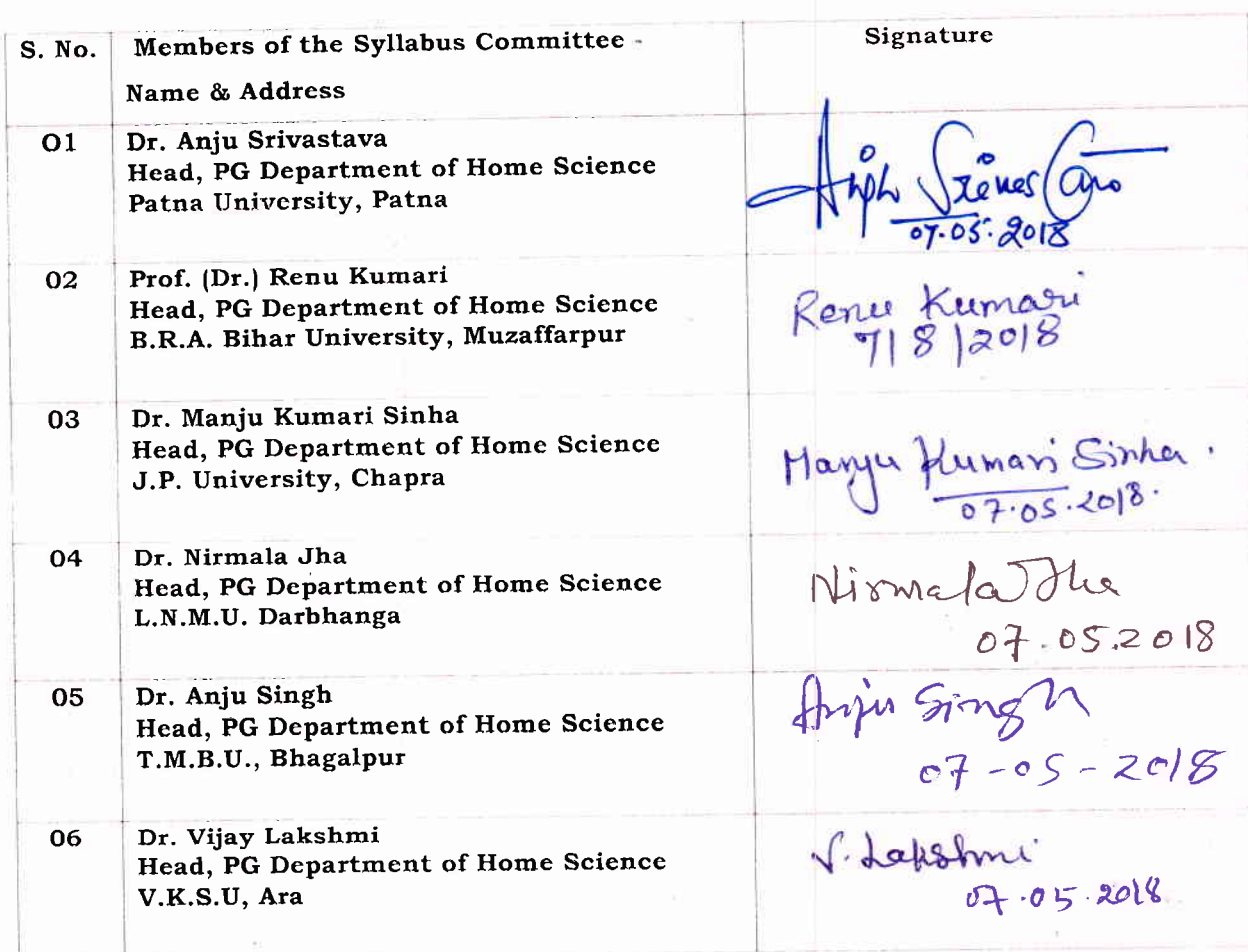 S. No. Members of the Syllabus Committee - Signature
Name & Address
01 Dr. Anju Srivastava
Head, PG Department of Home Science
Patna University, Patna
07.05.2018
02 Prof. (Dr.) Renu Kumari
Head, PG Department of Home Science
B.R.A. Bihar University, Muzaffarpur
Renu Kumari
7|8|2018
03 Dr. Manju Kumari Sinha
Head, PG Department of Home Science
J.P. University, Chapra
Manju Kumari Sinha.
07.05.2018.
04 Dr. Nirmala Jha
Head, PG Department of Home Science
L.N.M.U. Darbhanga
Nirmala Jha
07.05.2018
05 Dr. Anju Singh
Head, PG Department of Home Science
T.M.B.U., Bhagalpur
Anju Singh
07-05-2018
06 Dr. Vijay Lakshmi
Head, PG Department of Home Science
V.K.S.U, Ara
V. Lakshmi
07.05.2018